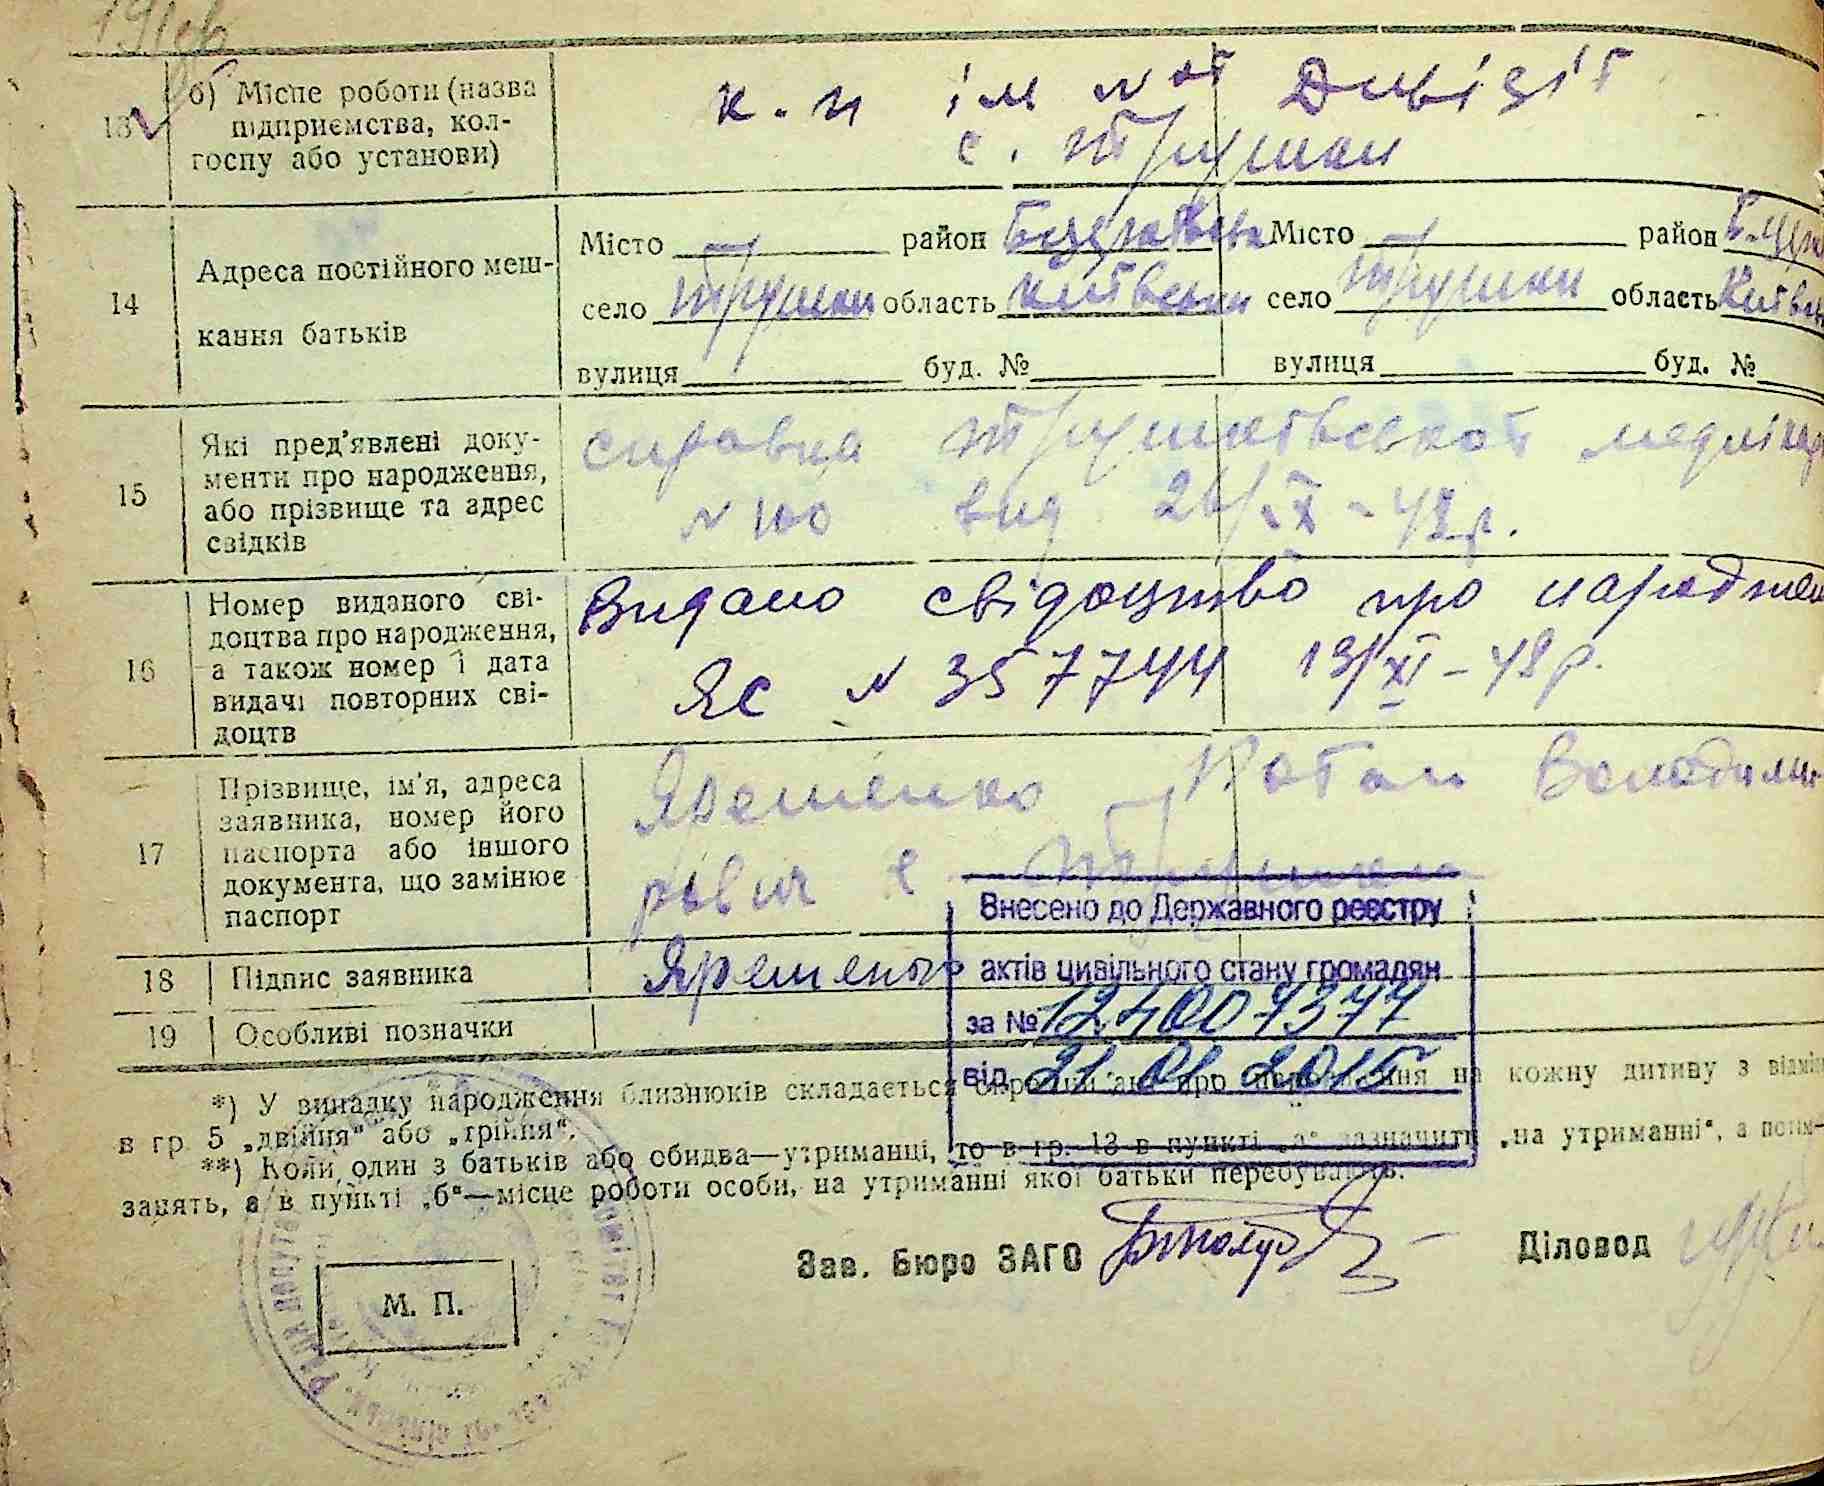 13 б) Місце роботи (назва підприємства, колгоспу або установи)
к-п ім Nої Дивізії
с. Трушки
14 Адреса постійного мешкання батьків
Місто район Білоцерківськ Місто район Б.Церк
село Трушки область Київськи село Трушки область Київськ
вулиця буд. № вулиця буд. №
15 Які пред'явлені документи про народження, або прізвище та адрес свідків
справка Трушківської
N 100 вид 26/.X-48р.
16 Номер виданого свідоцтва про народження, а також номер і дата видачі повторних свідоцтв
Видано свідоцтво про народжен
ЯС N 357744 13/XI-48р.
17 Прізвище, ім'я, адреса заявника, номер його паспорта або іншого документа, що замінює паспорт
Яременко Володими-
рович с Трушки
18 Підпис заявника Яременко
19 Особливі позначки
Внесено до Державного реєстру
актів цивільного стану громадян
за №
від 21.01.2015
*) У випадку народження близнюків складається окремий акт про народження на кожну дитину з відмі
в гр. 5 „двійня“ або „трійня“.
**) Коли один з батьків або обидва—утриманці, то в гр. 13 в пункті „а“ зазначить „на утриманні“, а
занять, а в пункті „б“—місце роботи особи, на утриманні якої батьки перебувають.
Зав. Бюро ЗАГС Діловод
М. П.